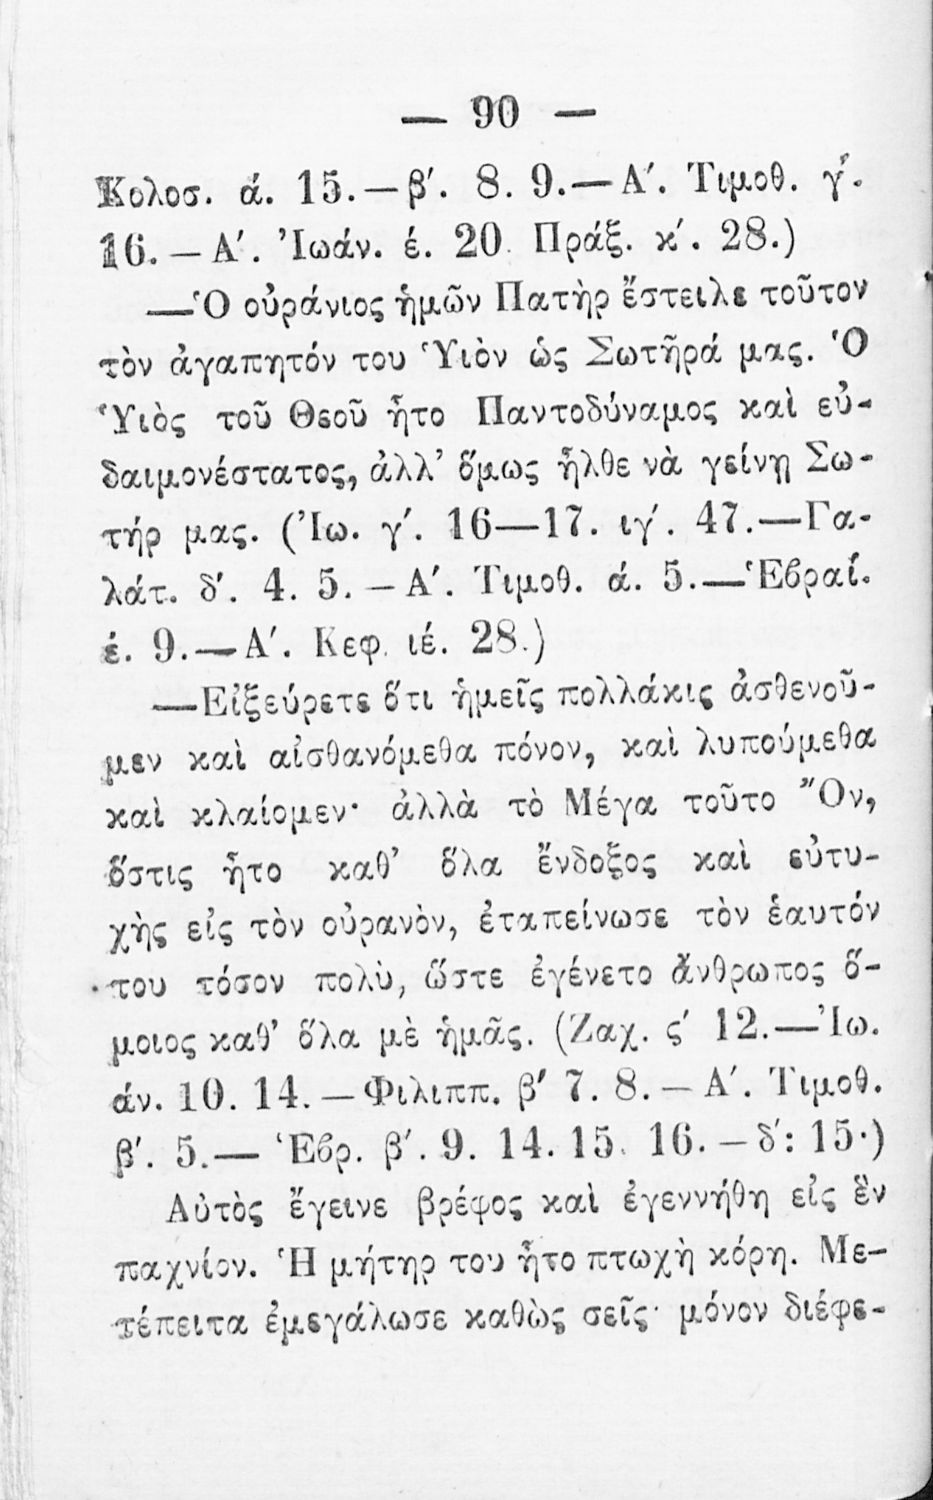 — 90 —
Κολοσ. ά. 15.—β΄. 8. 9.—Α΄. Τιμοθ. γ΄.
16.—Α΄. Ἰωάν. έ. 20. Πράξ. κ΄. 28.)
—Ὁ οὐράνιος ἡμῶν Πατὴρ ἔστειλε τοῦτον
τὸν ἀγαπητόν του Ὑιὸν ὡς Σωτῆρά μας. Ὁ
Ὑιὸς τοῦ Θεοῦ ἦτο Παντοδύναμος καὶ εὐ-
δαιμονέστατος, ἀλλ' ὅμως ἦλθε νὰ γείνῃ Σω-
τήρ μας. (Ἰω. γ΄. 16—17. ιγ΄. 47.—Γα-
λάτ. δ΄. 4. 5.—Α΄. Τιμοθ. ά. 5.—Ἑβραί.
έ. 9.—Α΄. Κεφ. ιέ. 28.)
—Εἰξεύρετε ὅτι ἡμεῖς πολλάκις ἀσθενοῦ-
μεν καὶ αἰσθανόμεθα πόνον, καὶ λυπούμεθα
καὶ κλαίομεν· ἀλλὰ τὸ Μέγα τοῦτο Ὂν,
ὅστις ἦτο καθ' ὅλα ἔνδοξος καὶ εὐτυ-
χὴς εἰς τὸν οὐρανὸν, ἐταπείνωσε τὸν ἑαυτόν
του τόσον πολὺ, ὥστε ἐγένετο ἄνθρωπος ὅ-
μοιος καθ' ὅλα μὲ ἡμᾶς. (Ζαχ. ς΄ 12.—Ἰω.
άν. 10. 14.—Φιλιππ. β΄ 7. 8.—Α΄. Τιμοθ.
β΄. 5.— Ἑβρ. β΄. 9. 14. 15. 16.—δ΄: 15·)
Αὐτὸς ἔγεινε βρέφος καὶ ἐγεννήθη εἰς ἓν
παχνίον. Ἡ μήτηρ του ἦτο πτωχὴ κόρη. Με-
τέπειτα ἐμεγάλωσε καθὼς σεῖς· μόνον διέφε-